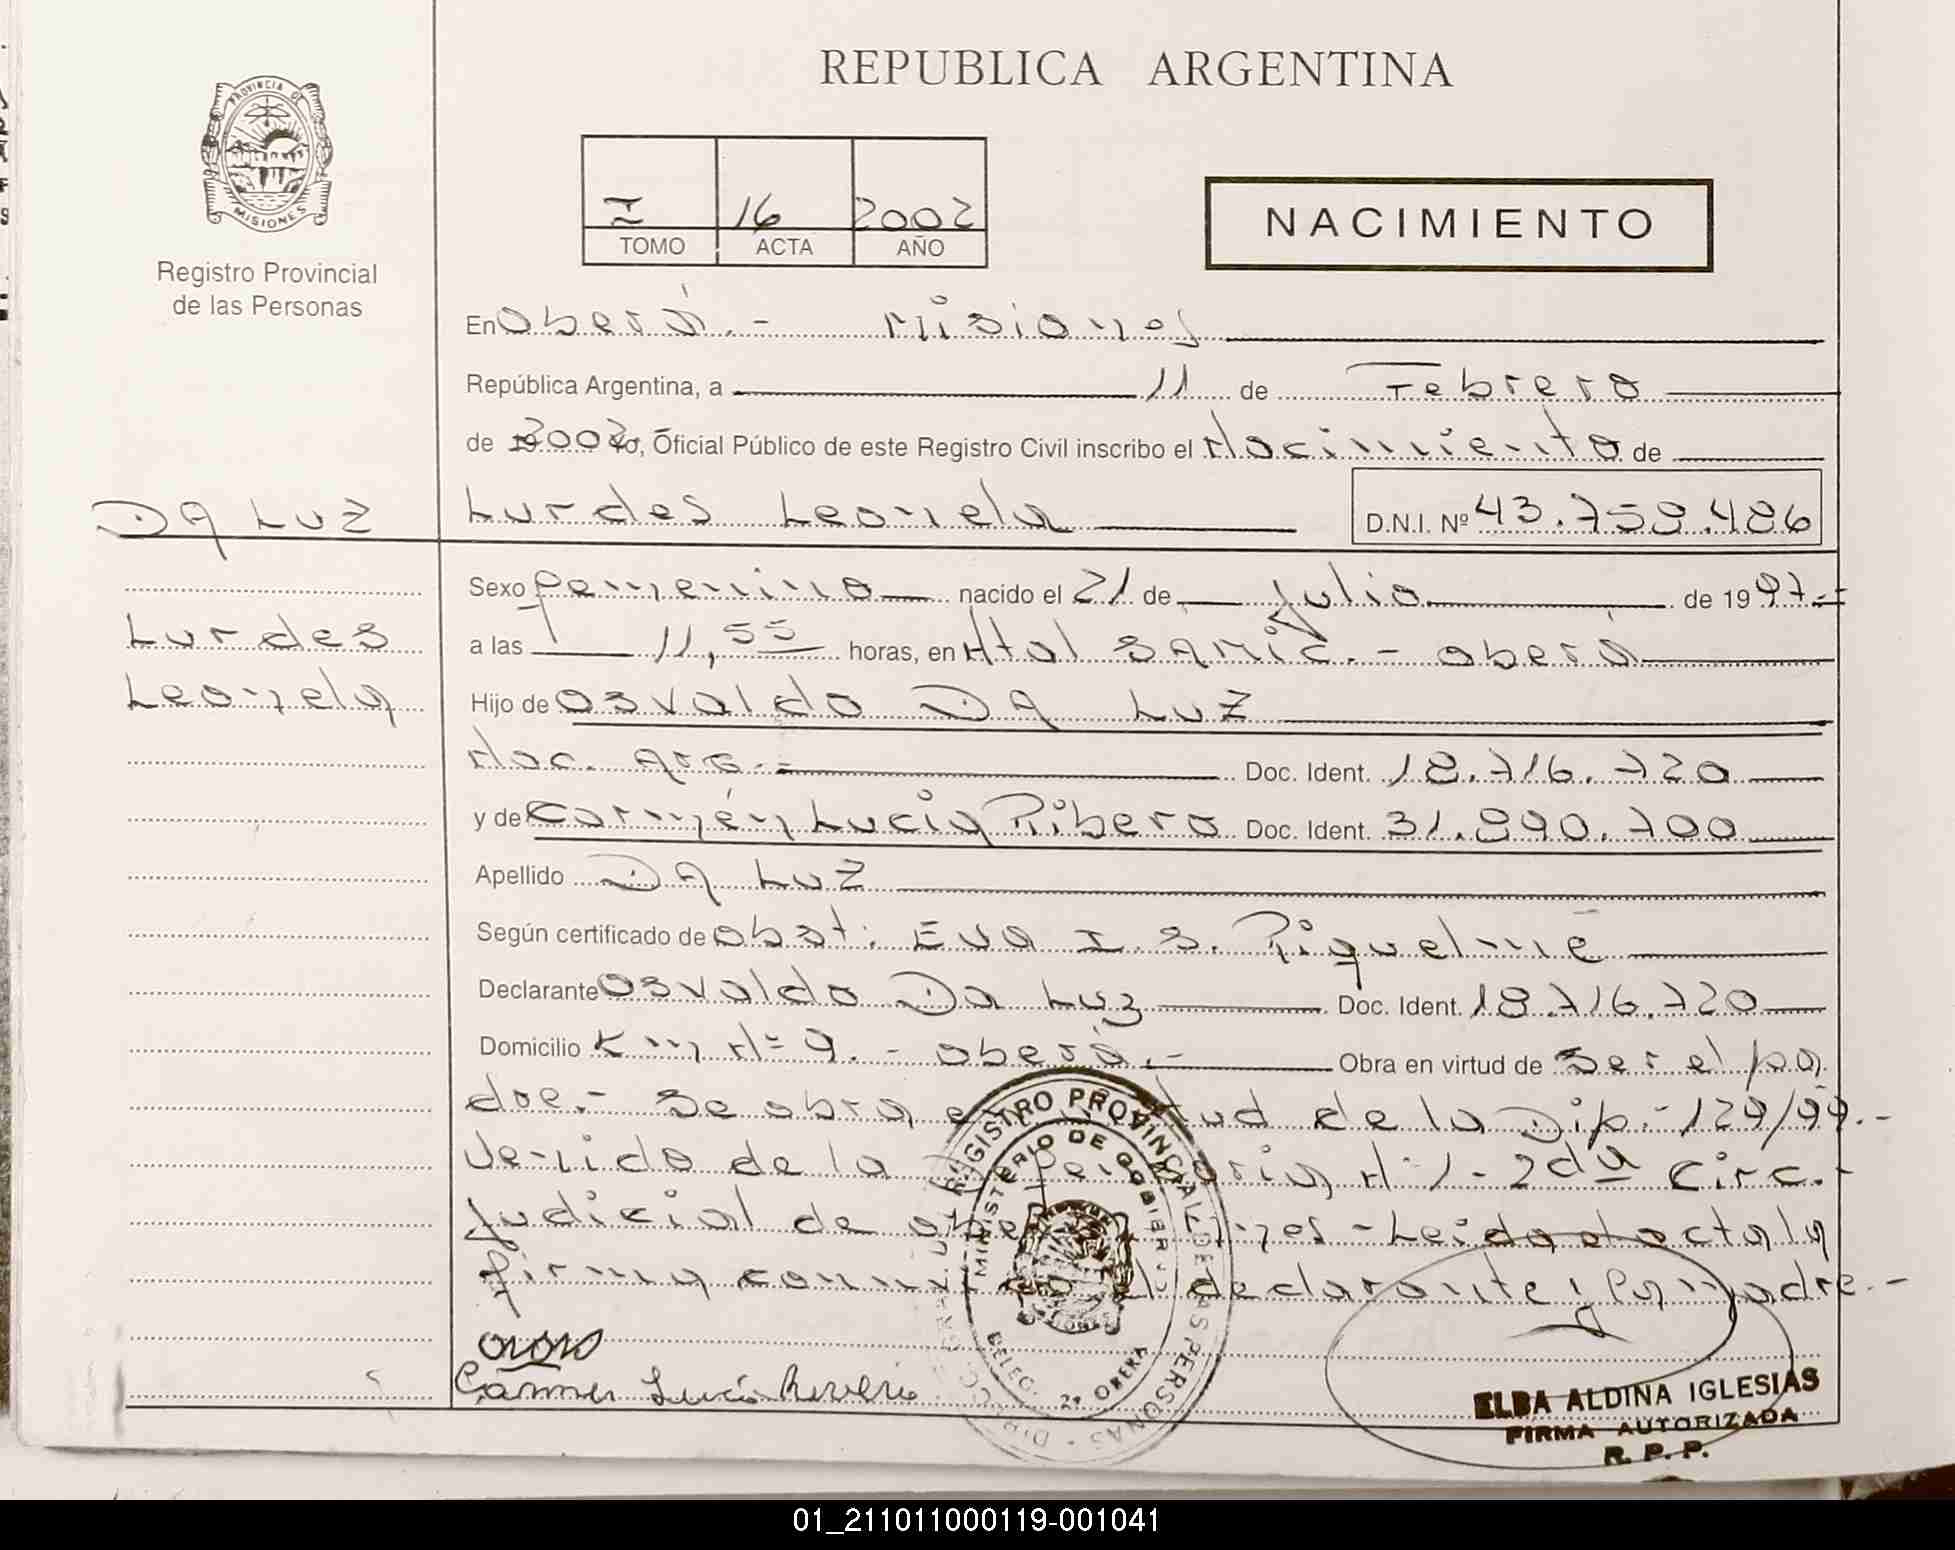 REPUBLICA ARGENTINA
PROVINCIA DE
MISIONES
Registro Provincial
de las Personas
I 16 2002
TOMO ACTA AÑO
NACIMIENTO
En Oberá.- Misiones
República Argentina, a 11 de Febrero
de 2002 yo, Oficial Público de este Registro Civil inscribo el Nacimiento de
Da Luz
Lurdes Leonela D.N.I. Nº 43.758.486
Sexo femenino nacido el 21 de Julio de 1997.=
Lurdes
a las 11,55 horas, en Htal SAMIC.- Oberá
Leonela
Hijo de Osvaldo Da Luz
Nac. Arg.= Doc. Ident. 18.716.720
y de Carmén Lucia Ribero Doc. Ident. 31.890.700
Apellido Da Luz
Según certificado de Obst. Eva I. S. Riquelme
Declarante Osvaldo Da Luz Doc. Ident. 18.716.720
Domicilio Km Nº 9.- Oberá.- Obra en virtud de Ser el pa
dre.- Se obra de la Disp.- 129/99.-
Venido de la Nº 1 - 2da Circ.-
Judicial de - Leida el acta la
firma el declarante y la madre.-
Carmen Lucia
REGISTRO PROVINCIAL DE LAS PERSONAS
MINISTERIO DE GOBIERNO
DELEG. 2ª OBERA
ELBA ALDINA IGLESIAS
FIRMA AUTORIZADA
R. P. P.
01_211011000119-001041